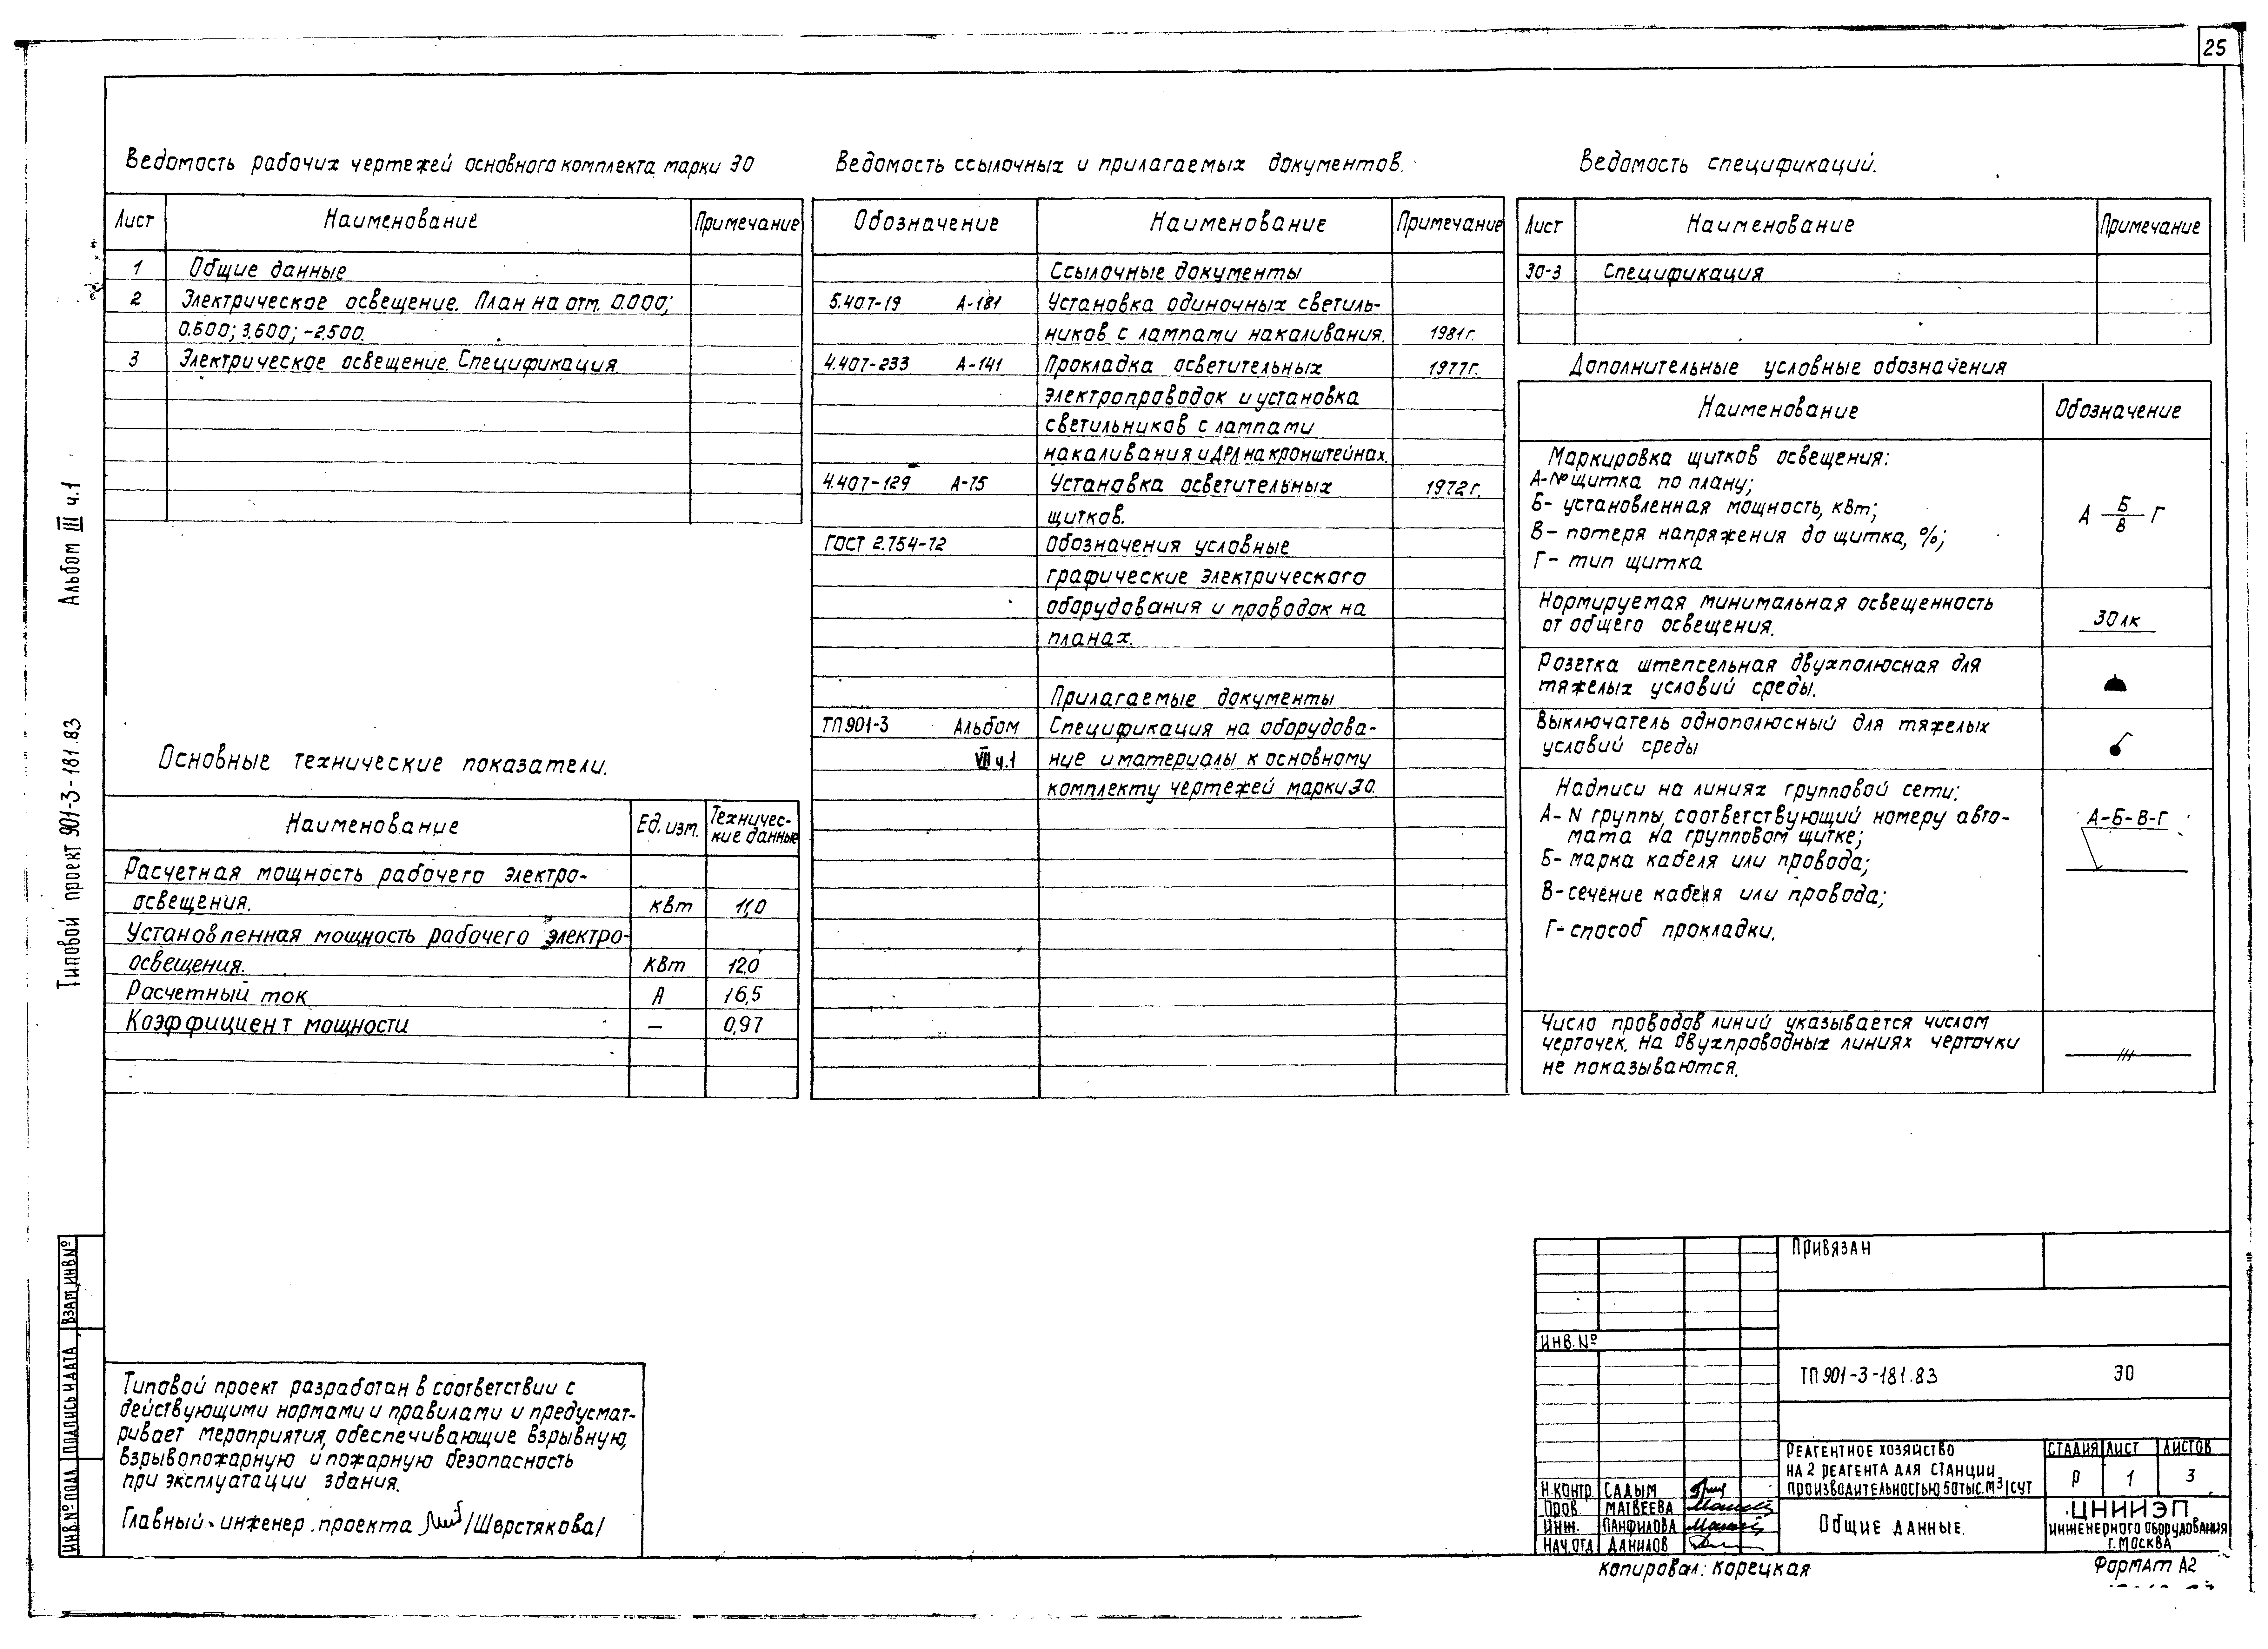 25
Ведомость рабочих чертежей основного комплекта марки ЭО
Лист Наименование Примечание
1 Общие данные
2 Электрическое освещение. План на отм. 0.000;
0.600; 3.600; -2.500.
3 Электрическое освещение. Спецификация.
Основные технические показатели.
Наименование Ед. изм. Техничес-
кие данные
Расчетная мощность рабочего электро-
освещения. квт 11,0
Установленная мощность рабочего электро-
освещения. квт 12,0
Расчетный ток А 16,5
Коэффициент мощности — 0,97
Ведомость ссылочных и прилагаемых документов.
Обозначение Наименование Примечание
Ссылочные документы
5.407-19 А-181 Установка одиночных светиль-
ников с лампами накаливания. 1981г.
4.407-233 А-141 Прокладка осветительных 1977г.
электропроводок и установка
светильников с лампами
накаливания и ДРЛ на кронштейнах.
4.407-129 А-75 Установка осветительных 1972г.
щитков.
ГОСТ 2.754-72 Обозначения условные
графические электрического
оборудования и проводок на
планах.
Прилагаемые документы
ТП 901-3 Альбом Спецификация на оборудова-
VII ч.1 ние и материалы к основному
комплекту чертежей марки ЭО.
Ведомость спецификаций.
Лист Наименование Примечание
ЭО-3 Спецификация
Дополнительные условные обозначения
Наименование Обозначение
Маркировка щитков освещения:
А-№ щитка по плану;
Б- установленная мощность, квт;
В- потеря напряжения до щитка, %;
Г- тип щитка
А Б/В Г
Нормируемая минимальная освещенность
от общего освещения.
30 лк
Розетка штепсельная двухполюсная для
тяжелых условий среды.
Выключатель однополюсный для тяжелых
условий среды
Надписи на линиях групповой сети:
А- N группы, соответствующий номеру авто-
мата на групповом щитке;
Б- марка кабеля или провода;
В- сечение кабеля или провода;
Г- способ прокладки.
А-Б-В-Г
Число проводов линий указывается числом
черточек. На двухпроводных линиях черточки
не показываются.
Типовой проект 901-3-181.83 Альбом III ч.1
ИНВ.№ ПОДЛ. ПОДПИСЬ И ДАТА ВЗАМ. ИНВ.№
Типовой проект разработан в соответствии с
действующими нормами и правилами и предусмат-
ривает мероприятия, обеспечивающие взрывную,
взрывопожарную и пожарную безопасность
при эксплуатации здания.
Главный инженер проекта /Шерстякова/
ПРИВЯЗАН
ИНВ.№
ТП 901-3-181.83 ЭО
РЕАГЕНТНОЕ ХОЗЯЙСТВО
НА 2 РЕАГЕНТА ДЛЯ СТАНЦИИ
ПРОИЗВОДИТЕЛЬНОСТЬЮ 50 ТЫС. М³/СУТ
СТАДИЯ ЛИСТ ЛИСТОВ
Р 1 3
Н.КОНТР. САДЫМ
ПРОВ. МАТВЕЕВА
ИНЖ. ПАНФИЛОВА
НАЧ.ОТД ДАНИЛОВ
ОБЩИЕ ДАННЫЕ.
ЦНИИЭП
ИНЖЕНЕРНОГО ОБОРУДОВАНИЯ
Г. МОСКВА
Копировал: Корецкая
ФОРМАТ А2